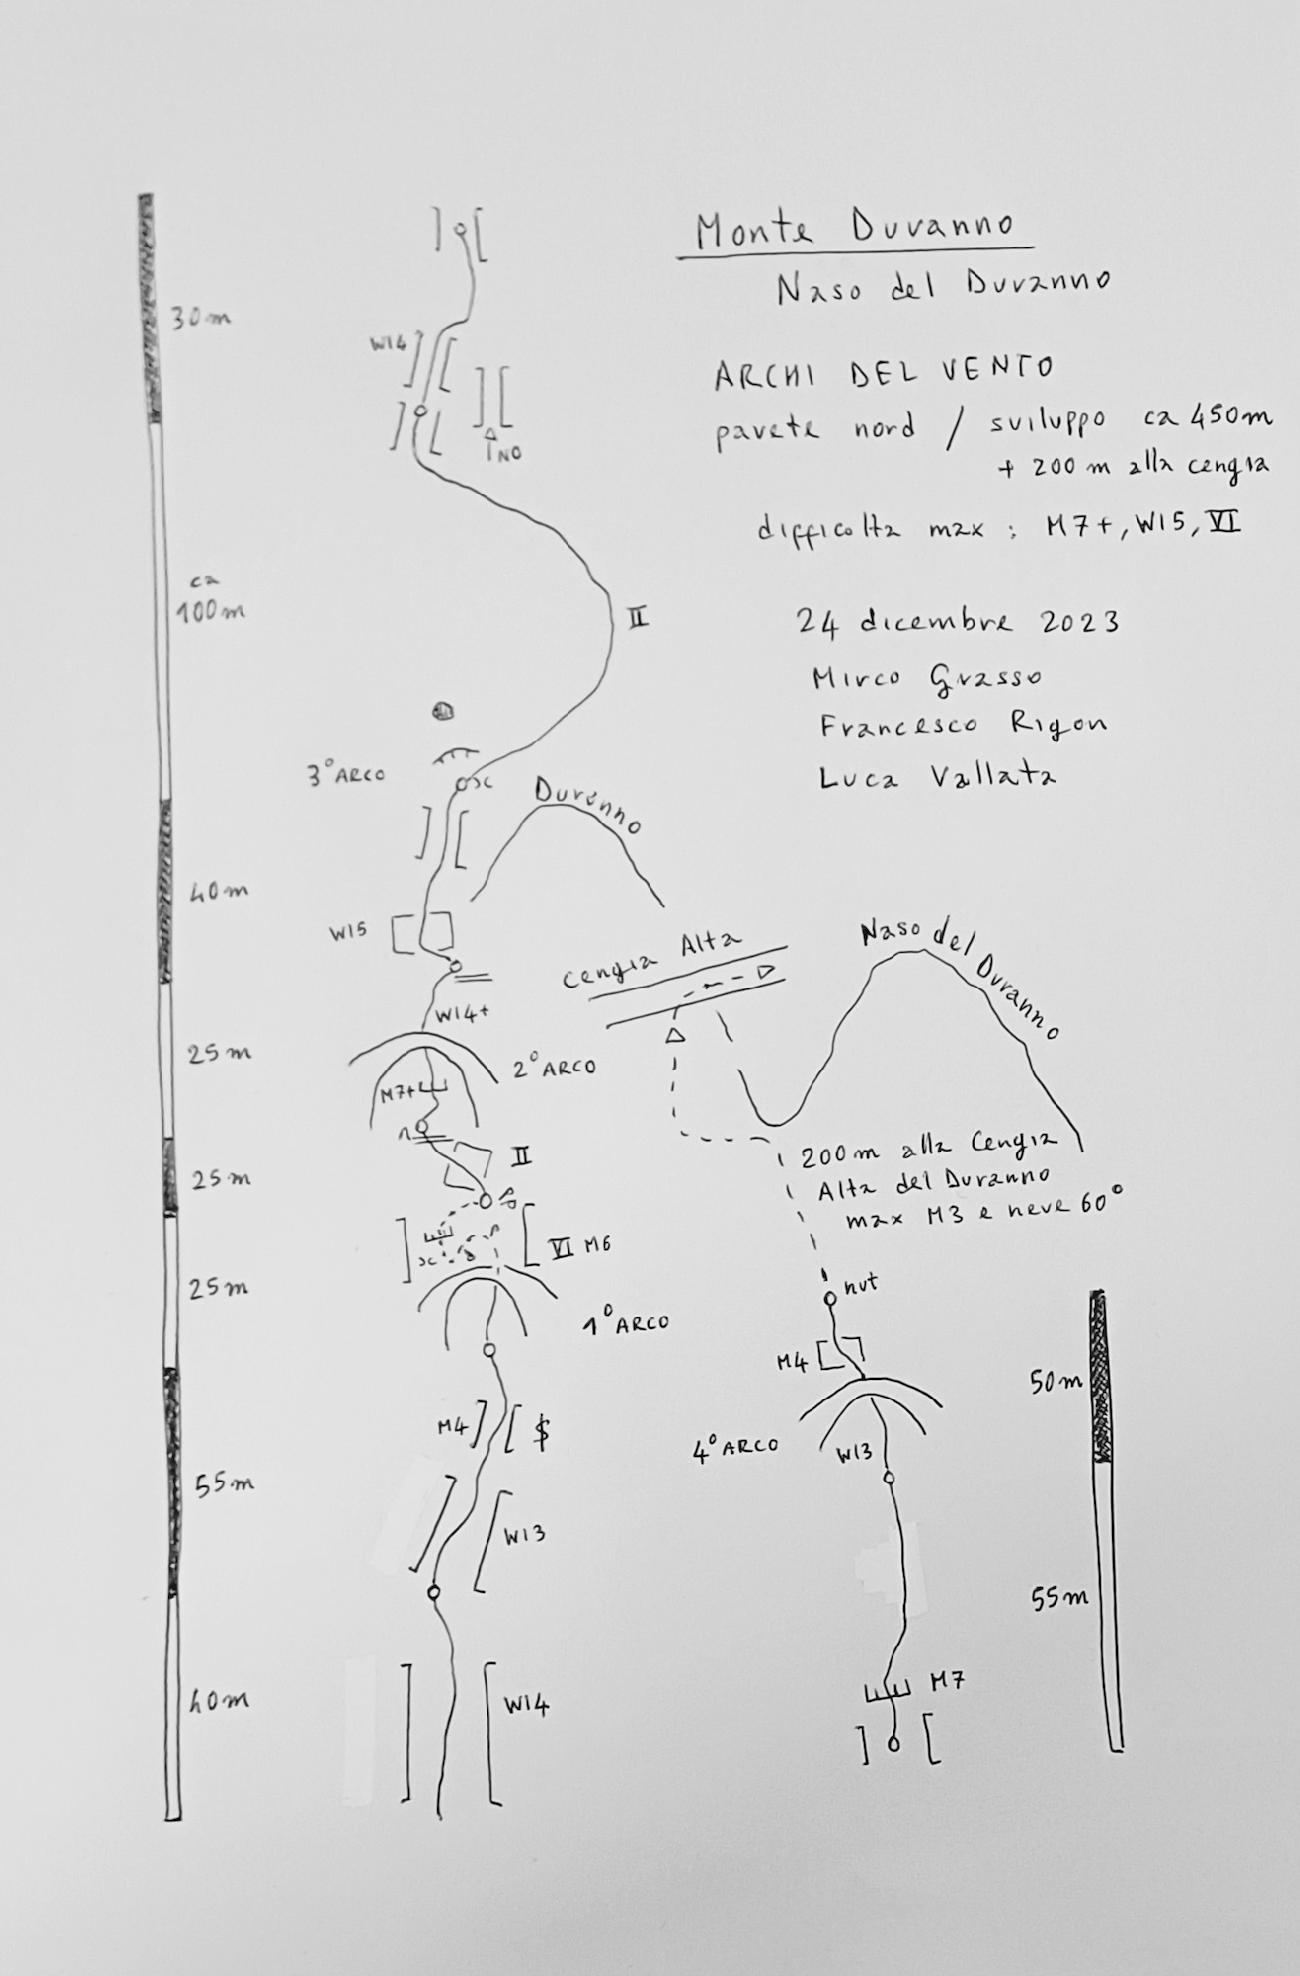 Monte Duranno
Naso del Duranno
ARCHI DEL VENTO
parete nord / sviluppo ca 450m
+ 200 m alla cengia
difficolta max : M7+, WI5, VI
24 dicembre 2023
Mirco Grasso
Francesco Rigon
Luca Vallata
30m
WI4
NO
ca
100m
II
3° ARCO
Duranno
40m
WI5
Cengia Alta
Naso del Duranno
WI4+
25m
2° ARCO
M7+
25m
II
200m alla Cengia
Alta del Duranno
max M3 e neve 60°
VI M6
25m
1° ARCO
nut
M4
50m
M4
$
4° ARCO
WI3
55m
WI3
55m
M7
40m
WI4